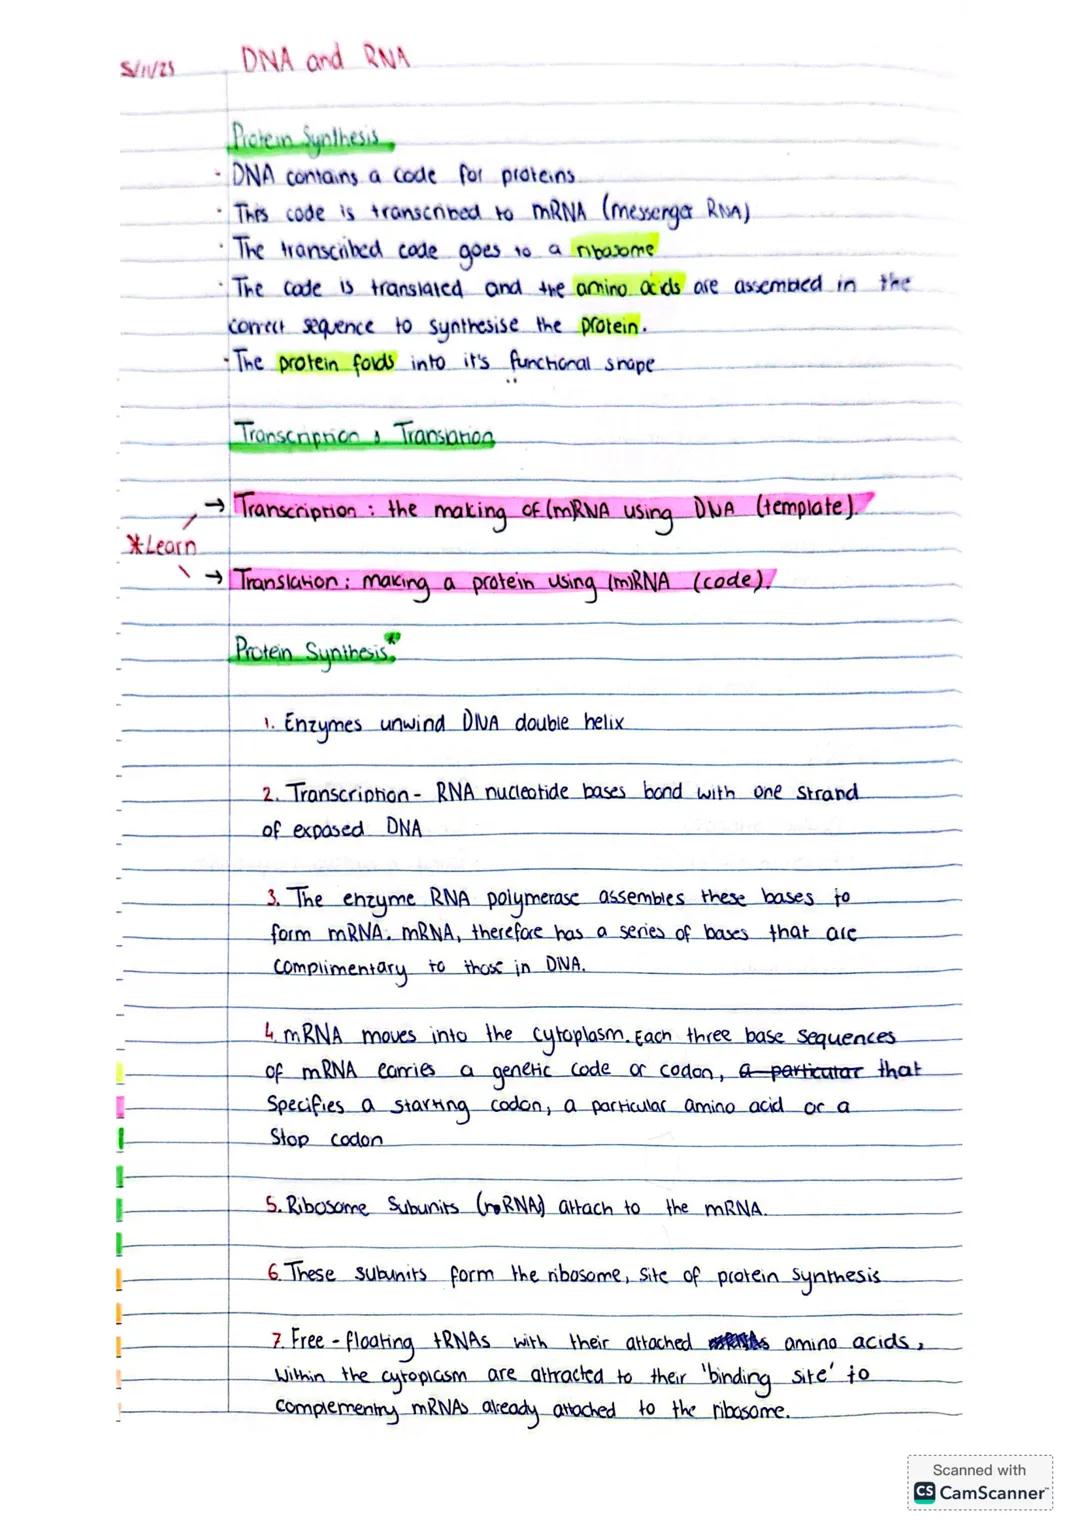 5/11/25 DNA and RNA
Protein Synthesis
· DNA contains a code for proteins
· This code is transcribed to mRNA (messenger RNA)
· The transcribed code goes to a ribosome
· The code is translated and the amino acids are assembled in the
correct sequence to synthesise the protein.
· The protein folds into it's functional shape
Transcription & Translation
→ Transcription : the making of (m)RNA using DNA (template).
*Learn
→ Translation : making a protein using (m)RNA (code).
Protein Synthesis*
1. Enzymes unwind DNA double helix
2. Transcription - RNA nucleotide bases bond with one strand
of exposed DNA
3. The enzyme RNA polymerase assembles these bases to
form mRNA. mRNA, therefore has a series of bases that are
complimentary to those in DNA.
4. mRNA moves into the cytoplasm. Each three base sequences
of mRNA carries a genetic code or codon, a particular that
specifies a starting codon, a particular amino acid or a
stop codon
5. Ribosome Subunits (rRNA) attach to the mRNA.
6. These subunits form the ribosome, site of protein synthesis
7. Free-floating tRNAs with their attached amino acids,
within the cytoplasm are attracted to their 'binding site' to
complementry mRNAs already attached to the ribosome.
Scanned with
CS CamScanner